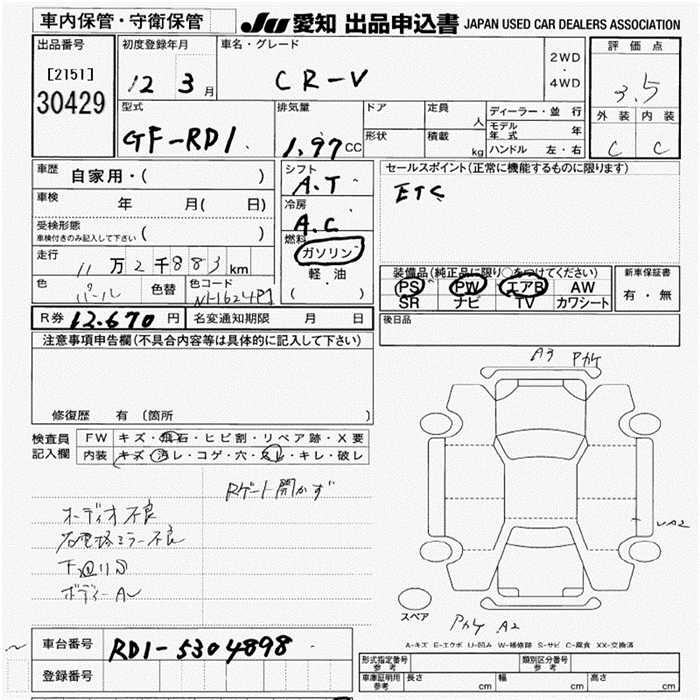 車内保管・守衛保管
JU 愛知 出品申込書 JAPAN USED CAR DEALERS ASSOCIATION
出品番号
[2151]
30429
初度登録年月
12 3月
車名・グレード
CR-V
2WD
・
4WD
評価点
3.5
外装 内装
C C
型式
GF-RD1
排気量
1.97cc
ドア
形状
定員 人
積載 kg
ディーラー・並行
モデル年式 年
ハンドル 左・右
車歴 自家用・( )
車検 年 月( 日)
受検形態
車検付きのみ記入して下さい ( )
走行 11万2千883km
色 パール 色替 色コード
シフト
A.T
冷房
A.C
燃料
ガソリン
軽油
( )
セールスポイント(正常に機能するものに限ります)
ETC
装備品(純正品に限り○をつけてください)
PS PW エアB AW
SR ナビ TV カワシート
新車保証書
有・無
R券 12.670円 名変通知期限 月 日
後日品
注意事項申告欄(不具合内容等は具体的に記入して下さい)
修復歴 有(箇所 )
検査員
記入欄
FW キズ・飛石・ヒビ割・リペア跡・X要
内装 キズ・汚レ・コゲ・穴・スレ・キレ・破レ
Rゲート開かず
オーディオ不良
右電格ミラー不良
下回りS
ボディーAU
A3 Pカケ
UA2
スペア
Pカケ A2
A-キズ E-エクボ U-凹み W-補修跡 S-サビ C-腐食 XX-交換済
車台番号 RD1-5304898
登録番号
形式指定番号
参考
類別区分番号
参考
車庫証明用
参考
長さ cm 幅 cm 高さ cm